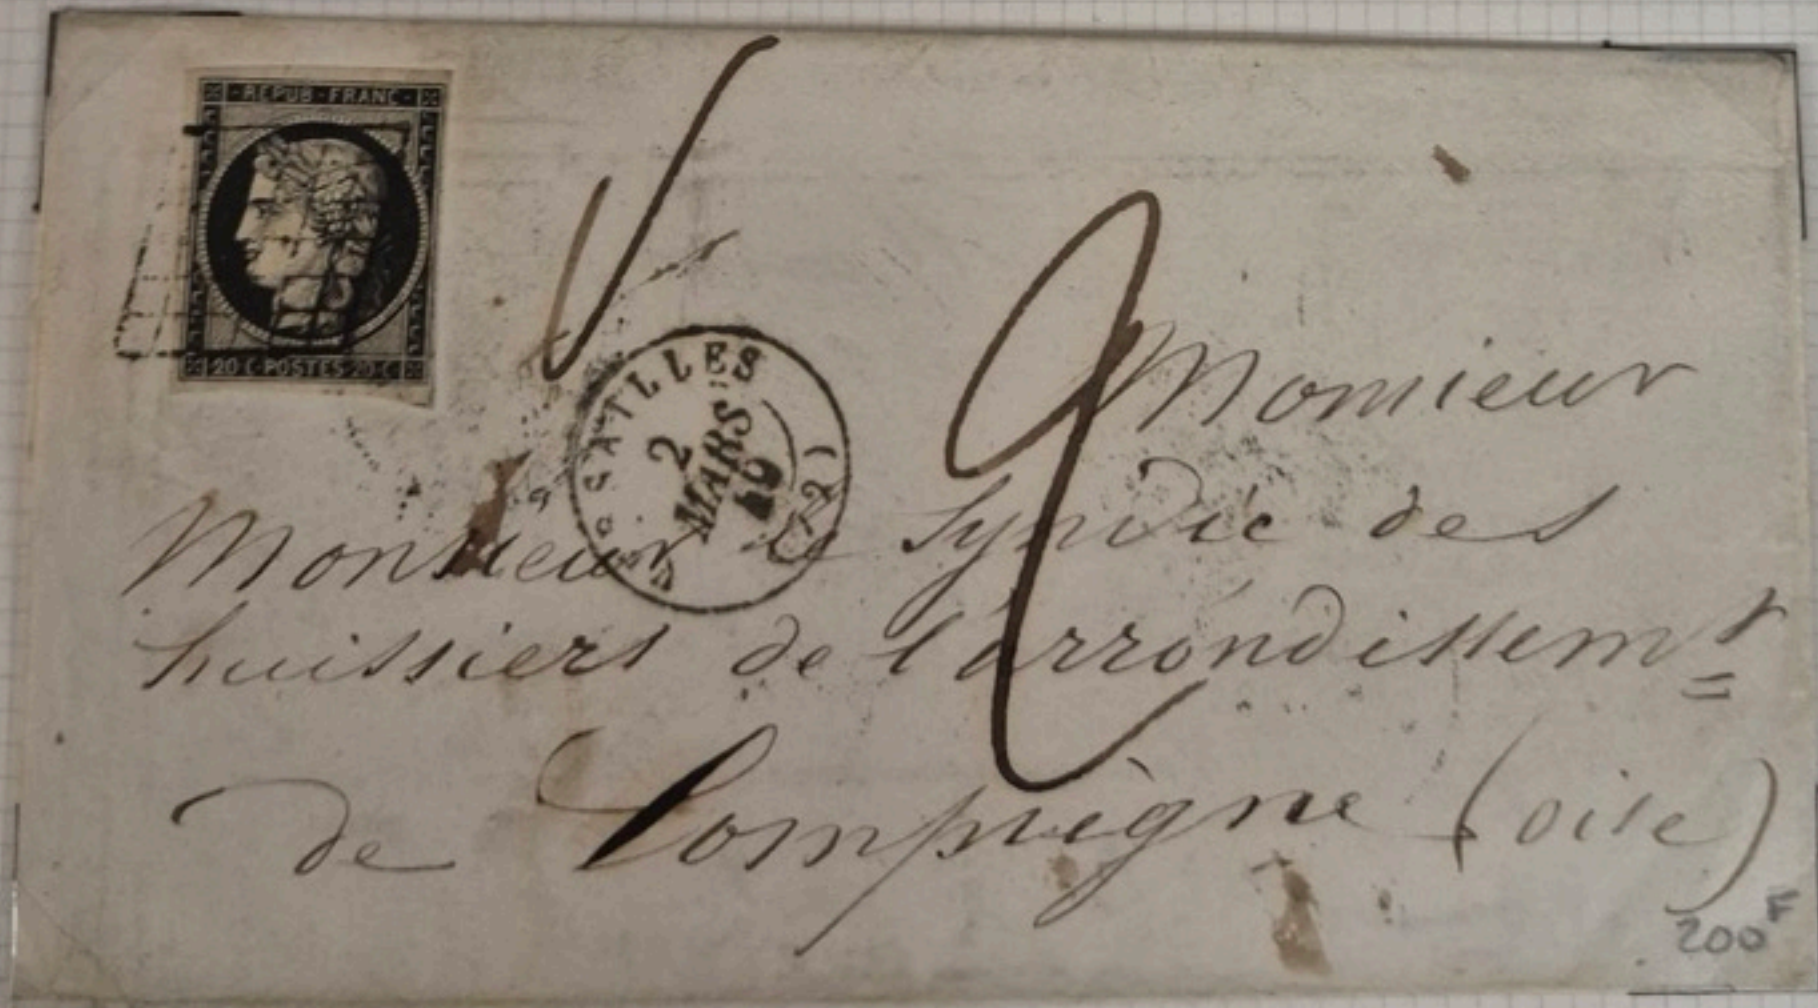 REPUB·FRANC·
20·C·POSTES·20·C
2
VERSAILLES
2
MARS
49
(72)
Monsieur
Monsieur le Syndic des
huissiers de l'arrondissemt
de Compiègne (oise)
200F